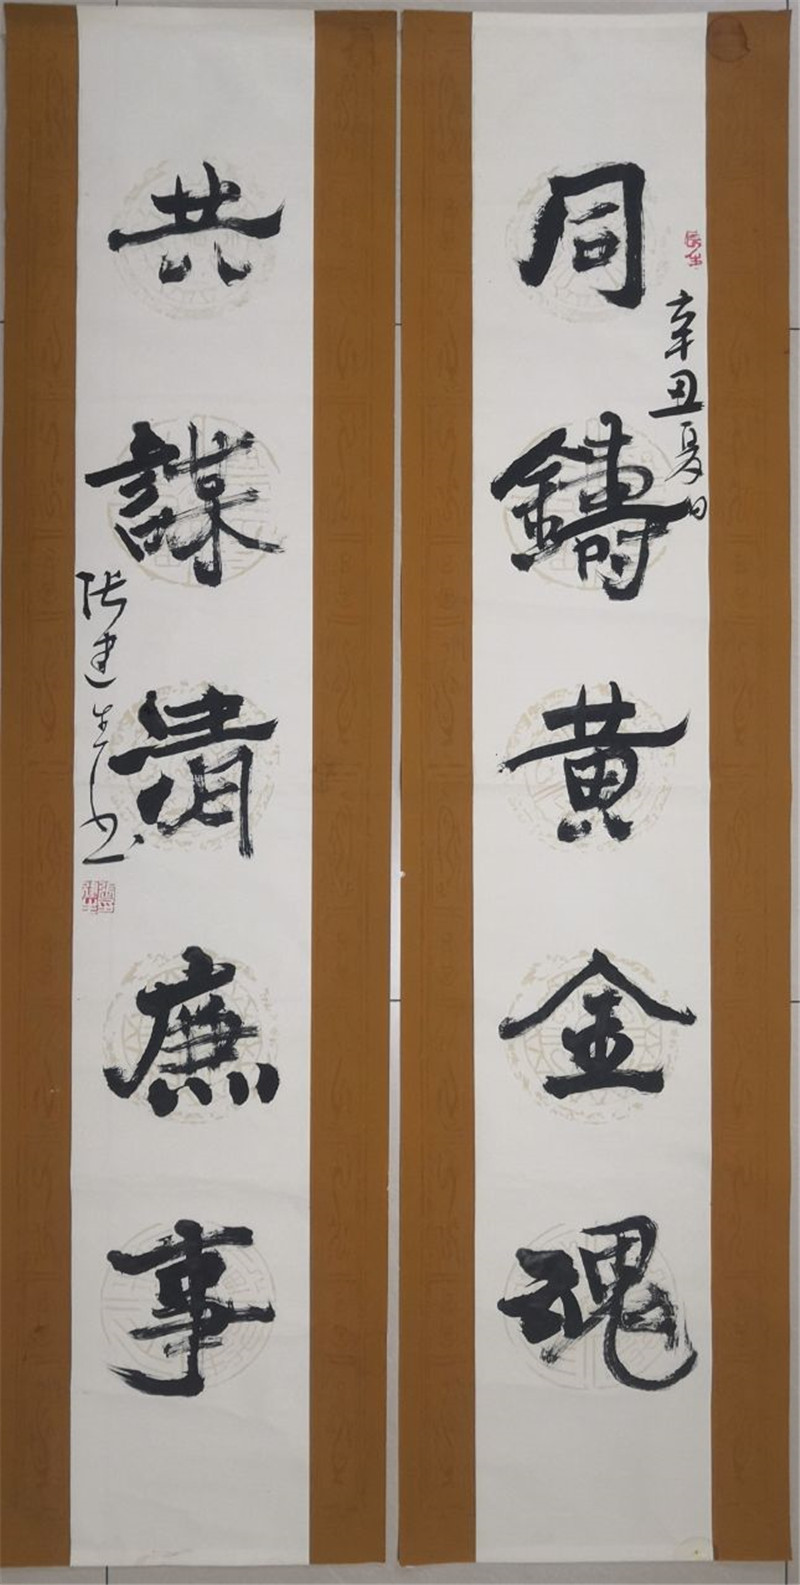 同鑄黄金魂
辛丑夏日
共謀清廉事
張建生书